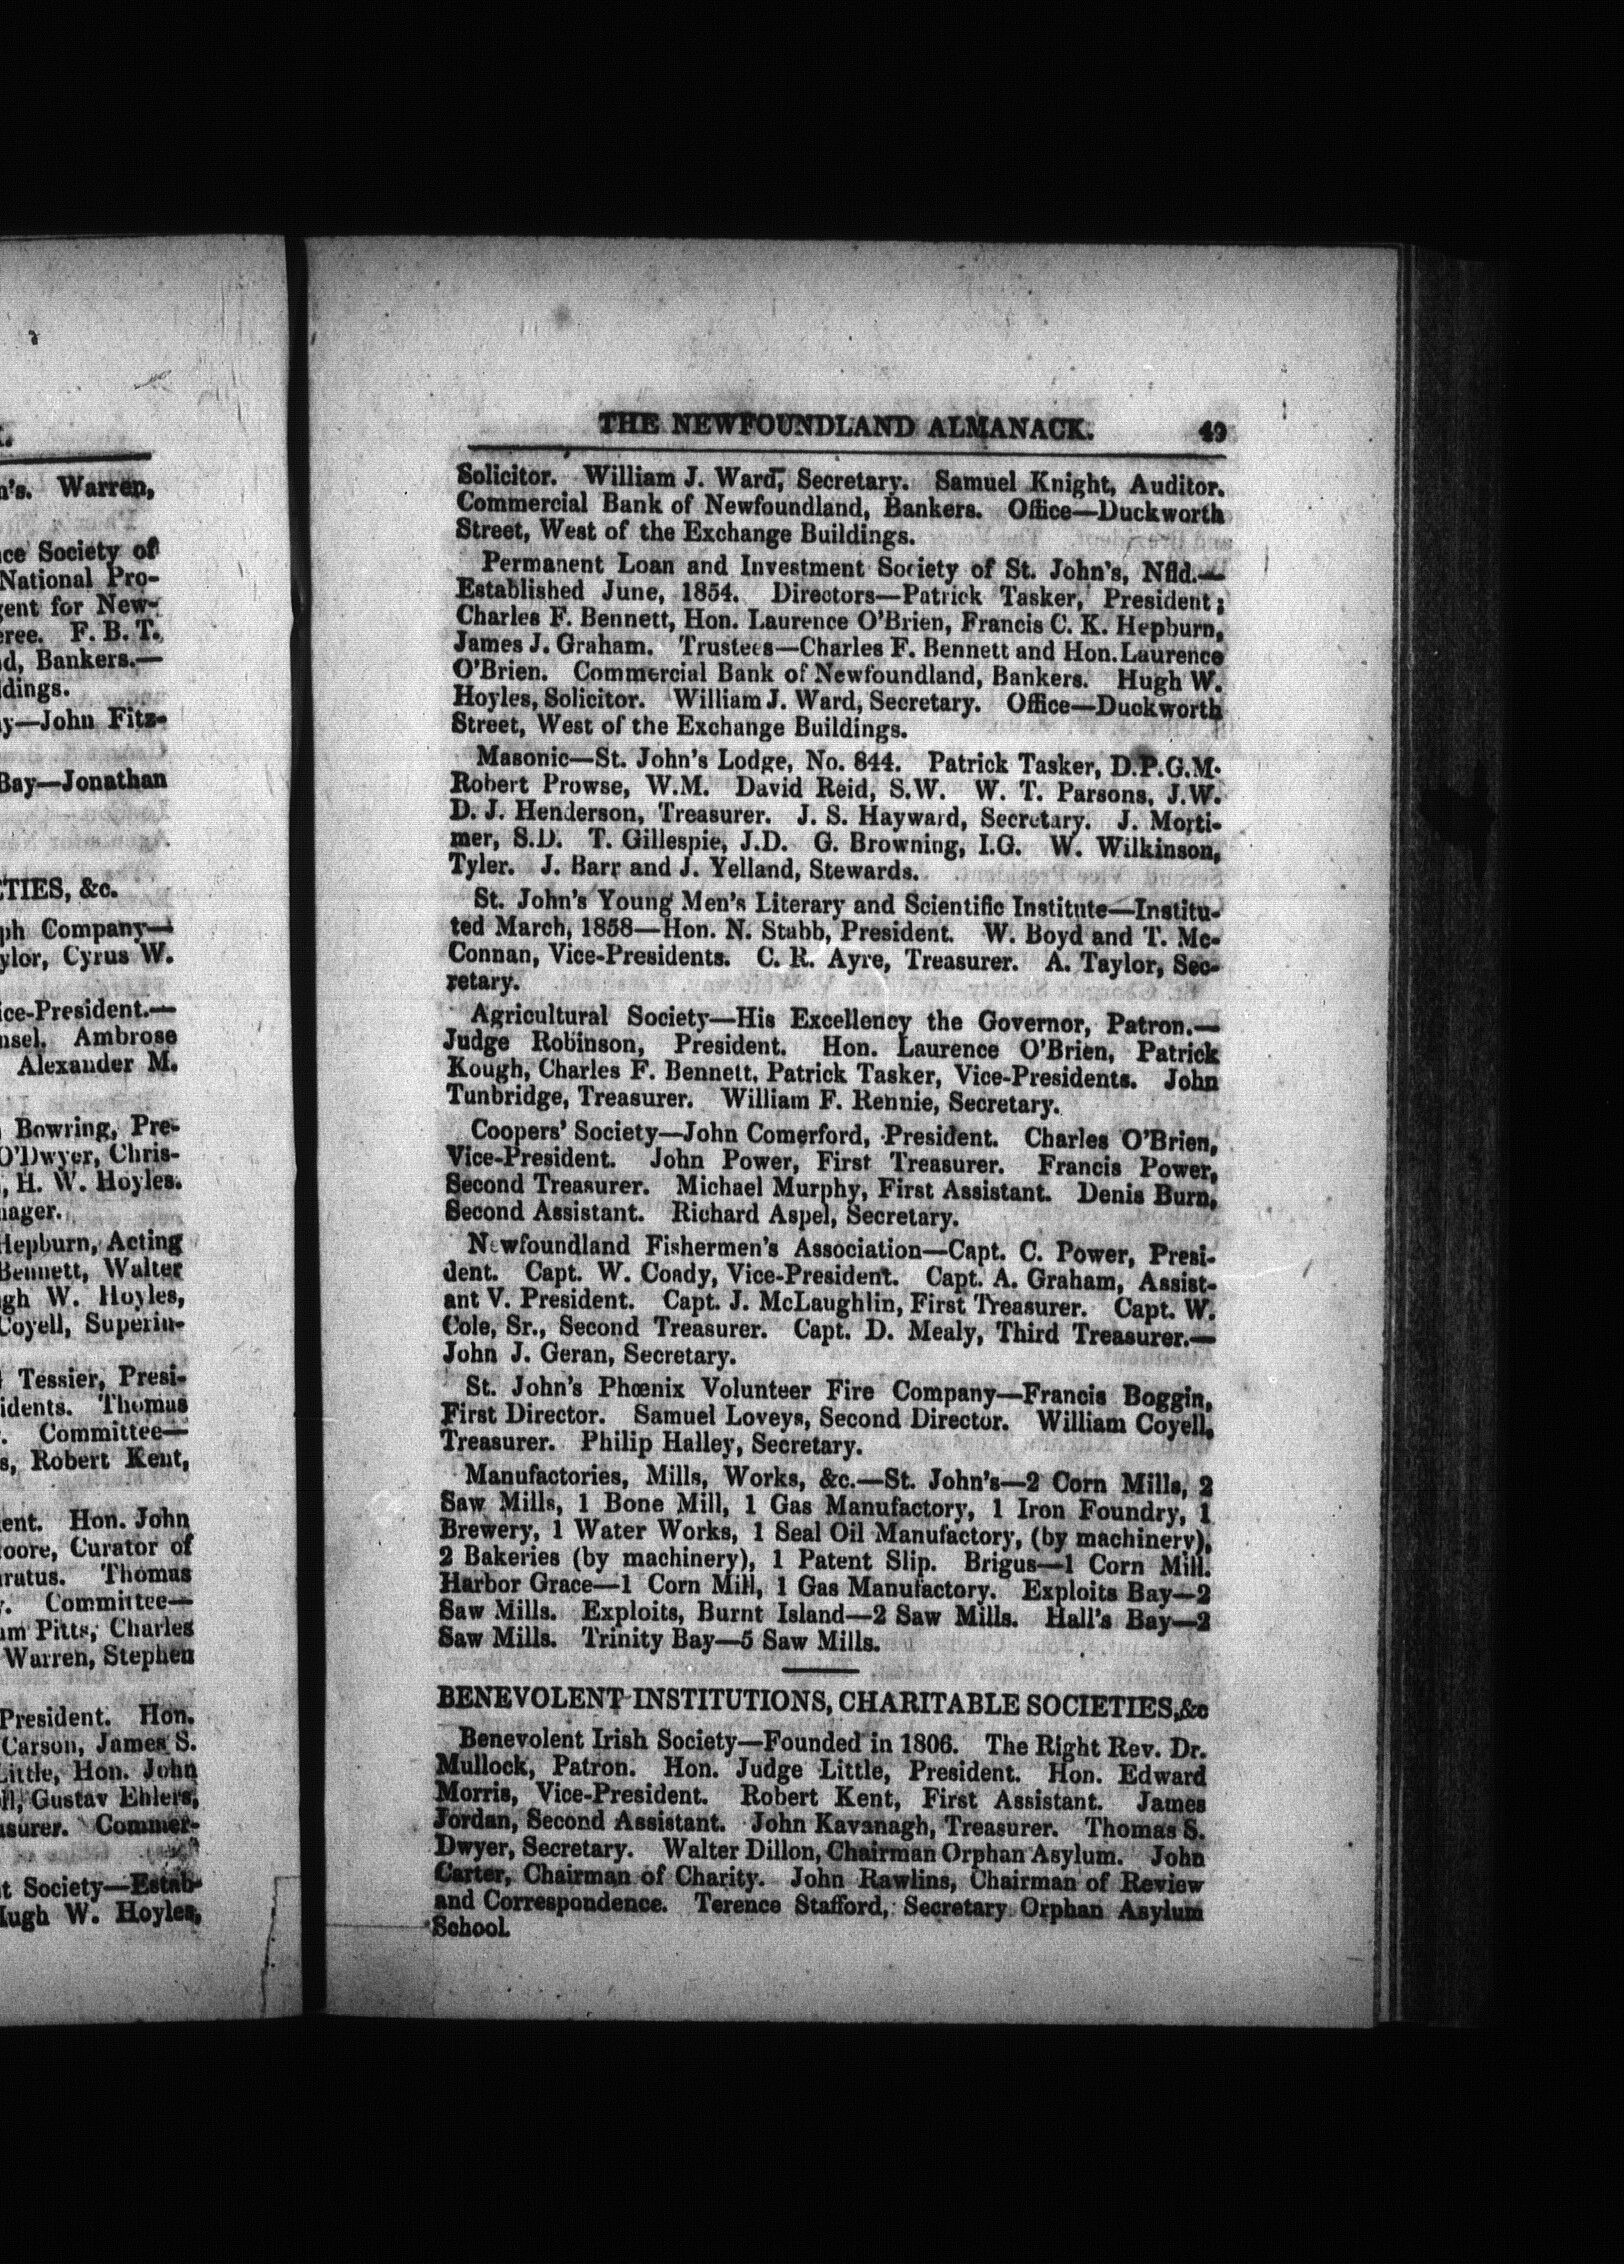 K.
n's. Warren,
ce Society of
National Pro-
gent for New-
eree. F. B. T.
d, Bankers.—
dings.
y—John Fitz-
Bay—Jonathan
TIES, &c.
ph Company—
ylor, Cyrus W.
ice-President.—
nsel. Ambrose
Alexander M.
Bowring, Pre-
O'Dwyer, Chris-
, H. W. Hoyles.
nager.
Hepburn, Acting
Bennett, Walter
gh W. Hoyles,
Coyell, Superin-
Tessier, Presi-
idents. Thomas
. Committee—
s, Robert Kent,
ent. Hon. John
oore, Curator of
aratus. Thomas
y. Committee—
am Pitts, Charles
Warren, Stephen
President. Hon.
Carson, James S.
Little, Hon. John
ll, Gustav Ehlers,
asurer. Commer-
t Society—Estab-
Hugh W. Hoyles,
THE NEWFOUNDLAND ALMANACK. 49
Solicitor. William J. Ward, Secretary. Samuel Knight, Auditor.
Commercial Bank of Newfoundland, Bankers. Office—Duckworth
Street, West of the Exchange Buildings.
Permanent Loan and Investment Society of St. John's, Nfld.—
Established June, 1854. Directors—Patrick Tasker, President;
Charles F. Bennett, Hon. Laurence O'Brien, Francis C. K. Hepburn,
James J. Graham. Trustees—Charles F. Bennett and Hon. Laurence
O'Brien. Commercial Bank of Newfoundland, Bankers. Hugh W.
Hoyles, Solicitor. William J. Ward, Secretary. Office—Duckworth
Street, West of the Exchange Buildings.
Masonic—St. John's Lodge, No. 844. Patrick Tasker, D.P.G.M.
Robert Prowse, W.M. David Reid, S.W. W. T. Parsons, J.W.
D. J. Henderson, Treasurer. J. S. Hayward, Secretary. J. Morti-
mer, S.D. T. Gillespie, J.D. G. Browning, I.G. W. Wilkinson,
Tyler. J. Barr and J. Yelland, Stewards.
St. John's Young Men's Literary and Scientific Institute—Institu-
ted March, 1858—Hon. N. Stabb, President. W. Boyd and T. Mc-
Connan, Vice-Presidents. C. R. Ayre, Treasurer. A. Taylor, Sec-
retary.
Agricultural Society—His Excellency the Governor, Patron.—
Judge Robinson, President. Hon. Laurence O'Brien, Patrick
Kough, Charles F. Bennett, Patrick Tasker, Vice-Presidents. John
Tunbridge, Treasurer. William F. Rennie, Secretary.
Coopers' Society—John Comerford, President. Charles O'Brien,
Vice-President. John Power, First Treasurer. Francis Power,
Second Treasurer. Michael Murphy, First Assistant. Denis Burn,
Second Assistant. Richard Aspel, Secretary.
Newfoundland Fishermen's Association—Capt. C. Power, Presi-
dent. Capt. W. Coady, Vice-President. Capt. A. Graham, Assist-
ant V. President. Capt. J. McLaughlin, First Treasurer. Capt. W.
Cole, Sr., Second Treasurer. Capt. D. Mealy, Third Treasurer.—
John J. Geran, Secretary.
St. John's Phœnix Volunteer Fire Company—Francis Boggin,
First Director. Samuel Loveys, Second Director. William Coyell,
Treasurer. Philip Halley, Secretary.
Manufactories, Mills, Works, &c.—St. John's—2 Corn Mills, 2
Saw Mills, 1 Bone Mill, 1 Gas Manufactory, 1 Iron Foundry, 1
Brewery, 1 Water Works, 1 Seal Oil Manufactory, (by machinery),
2 Bakeries (by machinery), 1 Patent Slip. Brigus—1 Corn Mill.
Harbor Grace—1 Corn Mill, 1 Gas Manufactory. Exploits Bay—2
Saw Mills. Exploits, Burnt Island—2 Saw Mills. Hall's Bay—2
Saw Mills. Trinity Bay—5 Saw Mills.
BENEVOLENT INSTITUTIONS, CHARITABLE SOCIETIES,&c
Benevolent Irish Society—Founded in 1806. The Right Rev. Dr.
Mullock, Patron. Hon. Judge Little, President. Hon. Edward
Morris, Vice-President. Robert Kent, First Assistant. James
Jordan, Second Assistant. John Kavanagh, Treasurer. Thomas S.
Dwyer, Secretary. Walter Dillon, Chairman Orphan Asylum. John
Carter, Chairman of Charity. John Rawlins, Chairman of Review
and Correspondence. Terence Stafford, Secretary Orphan Asylum
School.